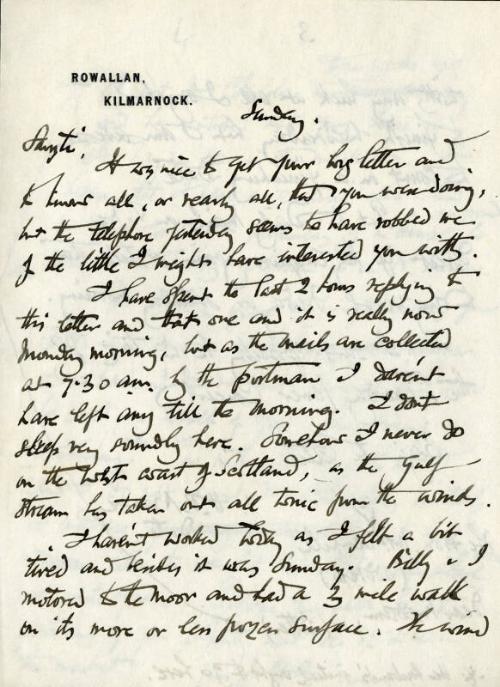 ROWALLAN,
KILMARNOCK.
Sunday.
It was nice to get your long letter and
to know all, or nearly all, that you were doing,
but the telephone yesterday seems to have robbed me
of the little I might have interested you with.
I have spent the last 2 hours replying to
this letter and that one and it is really now
Monday morning, but as the mails are collected
at 7.30 am. by the postman I daren't
have left any till the morning. I don't
sleep very soundly here. Somehow I never do
on the West coast of Scotland, as the Gulf
Stream has taken out all tonic from the winds.
I haven't worked today as I felt a bit
tired and besides it was Sunday. Billy & I
motored to the moor and had a 3 mile walk
on its more or less frozen surface. The wind